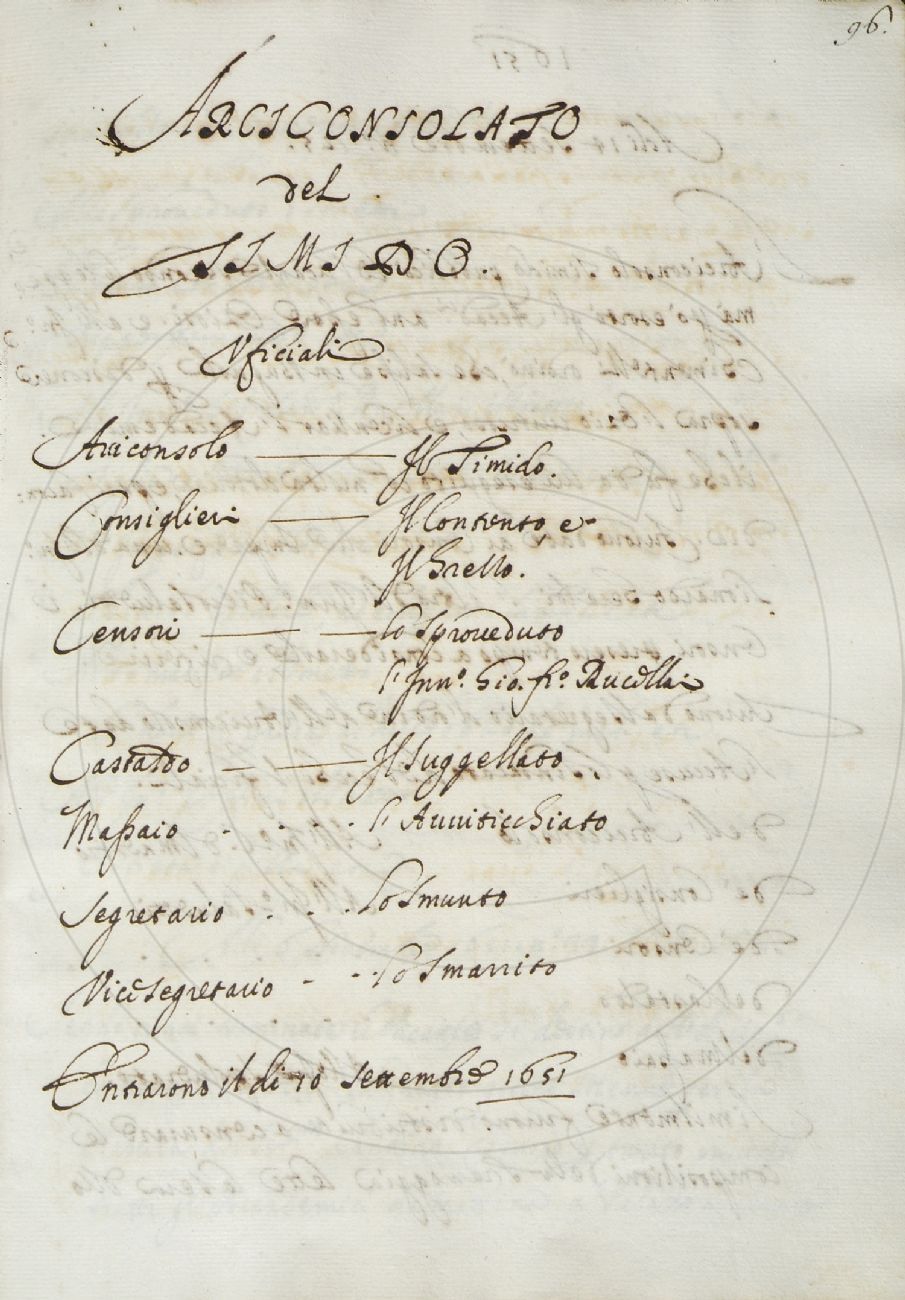 96.
ARCICONSOLATO
del
TIMIDO.
Vficiali
Arciconsolo Il Timido.
Consiglieri Il Contento, e
Il Grello.
Censori lo Sproueduto
l'Inno. Gio. fro. Rucellai
Castaldo Il Suggellato
Massaio l'Auuiticchiato
Segretario Lo Smunto
Vicesegretario Lo Smarrito
Entrarono il di 10 Settembre 1651